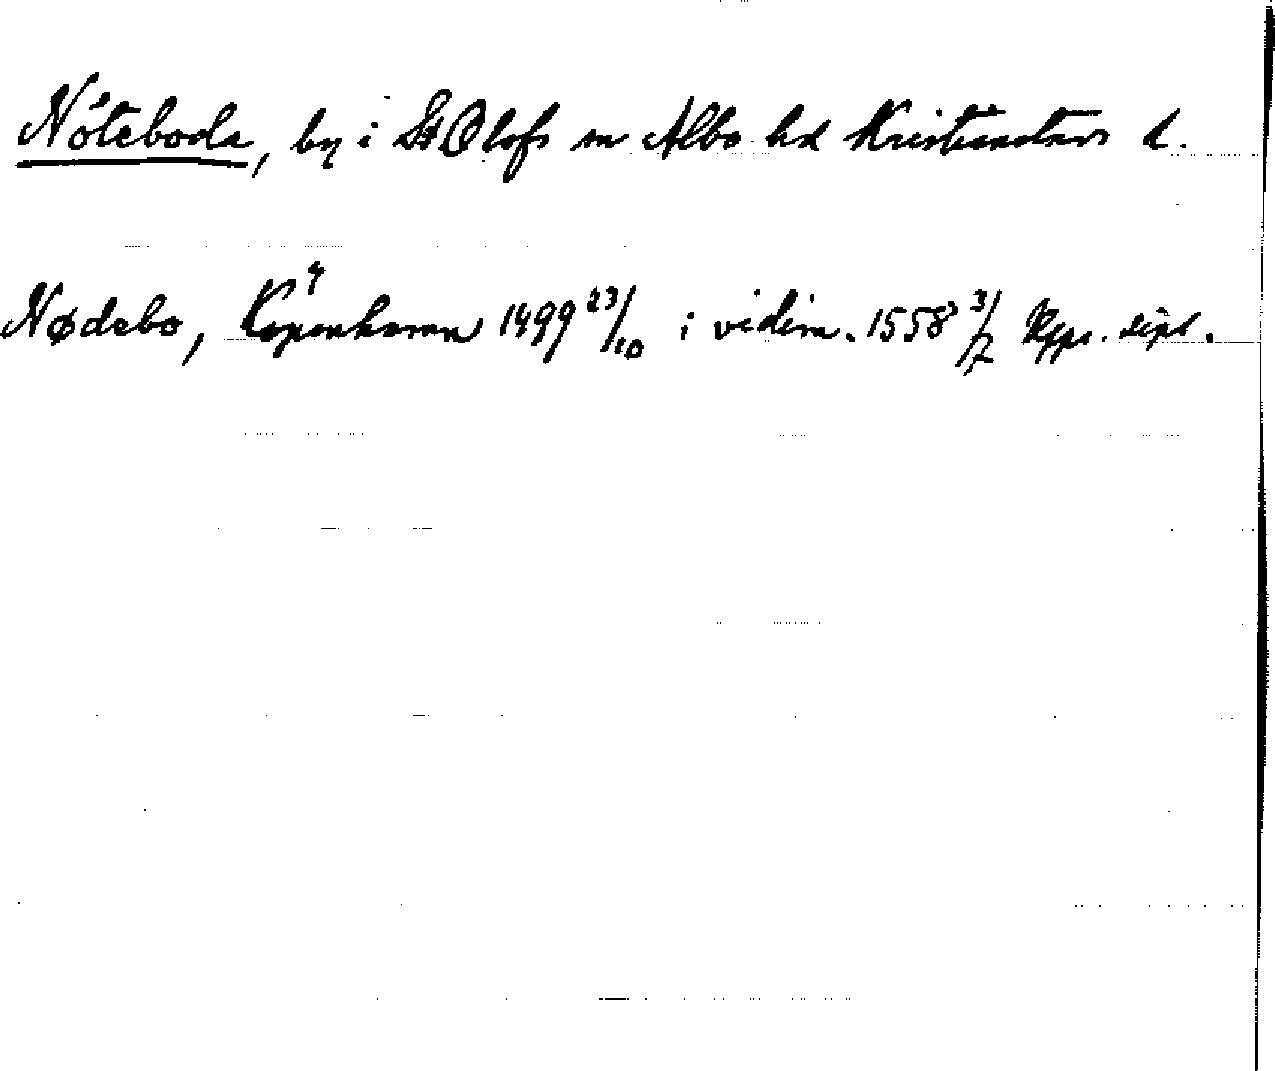 Nöteboda, by i St Olofs sn Albo hd Kristianstads l.
Nødebo, Kopenhamn 1499 23/10 i vidim. 1558 3/2 Rpps. dipl.